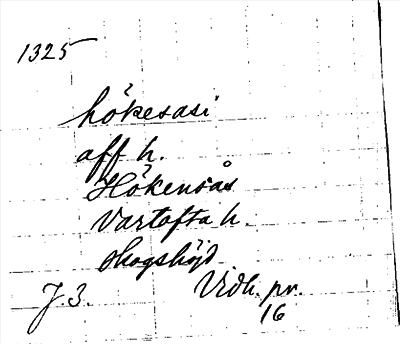 1325
hökesasi
aff h.
Hökensås
Vartofta h.
skogshöjd
J. 3. Vidh. pr.
16